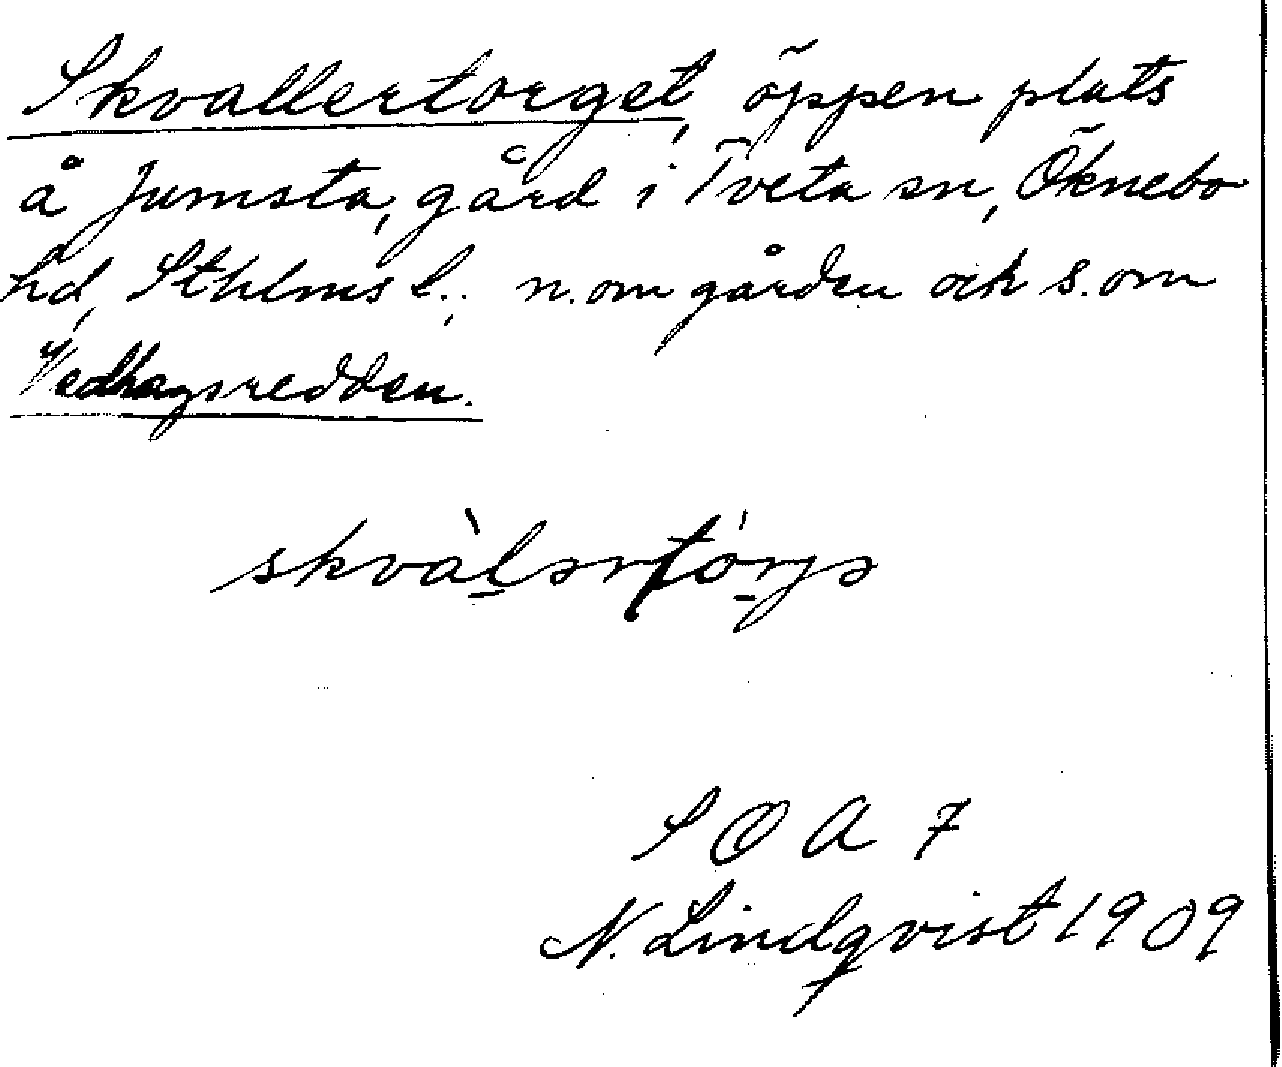 Skvallertorget, öppen plats
å Jumsta, gård i Tveta sn, Öknebo
hd, Sthlms l.; n. om gården och s. om
Vedhagsredden.
skvàlərtórjə
S O A 7
N. Lindqvist 1909